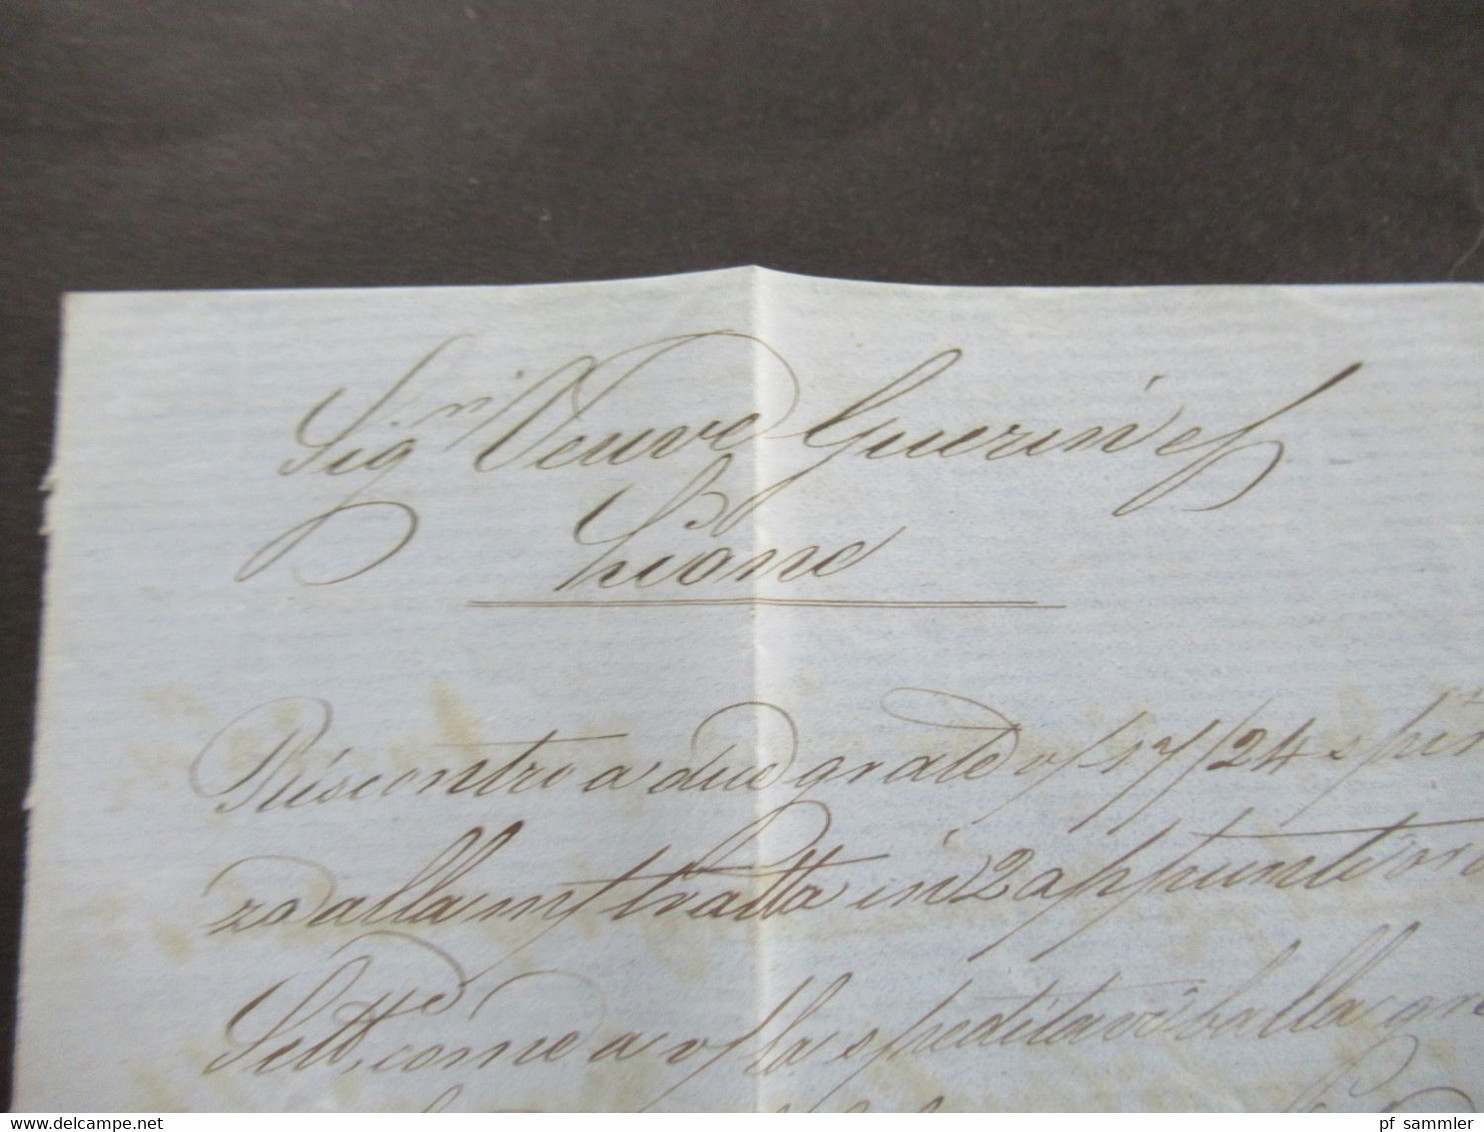 Sig.ri Veuve Guerin ef
Lione
Riscontro a due grate v/ 17/24 spir
za alla m/ tratta in 2 appunti
Sett.e, come a v/ la speditavi balla
delcampe.net
pf_sammler